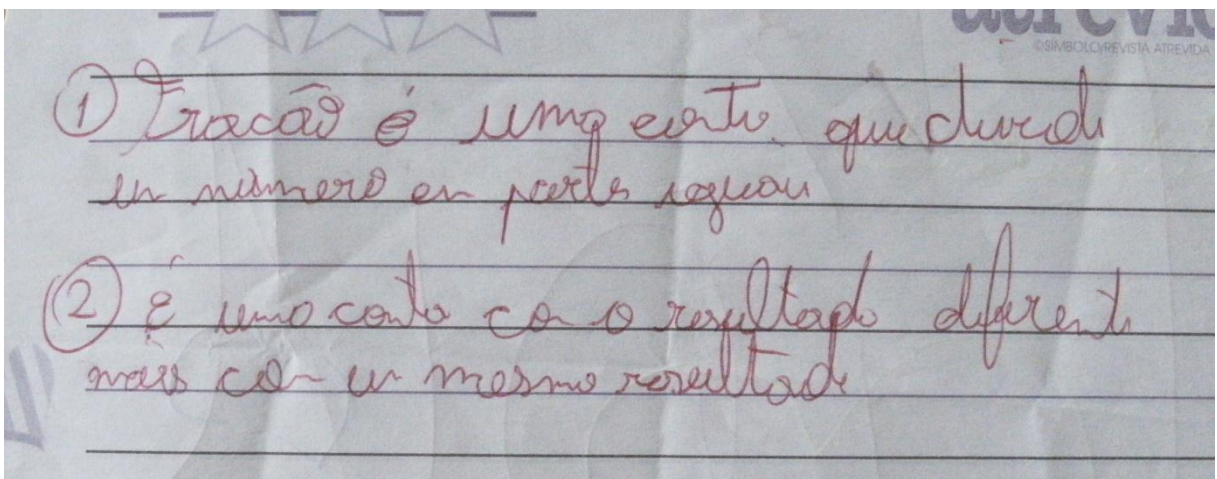 ©SÍMBOLO/REVISTA ATREVIDA
① Fracão é uma conta que dividi
un número en parts iguais
② é uma conta con o resultado diferent
mais con un mesmo resultado